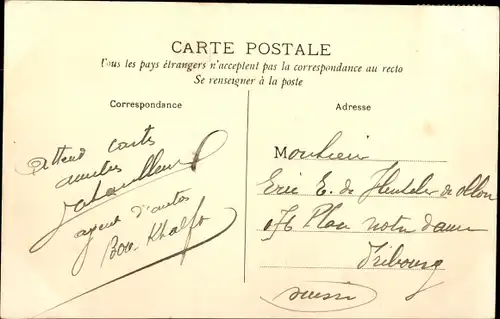 CARTE POSTALE
Tous les pays étrangers n'acceptent pas la correspondance au recto
Se renseigner à la poste
Correspondance
Adresse
Attend cartes
agent d'autos
Bou-Khalfa
Monsieur
Eric E. de
176 Place notre dame
Fribourg
suisse